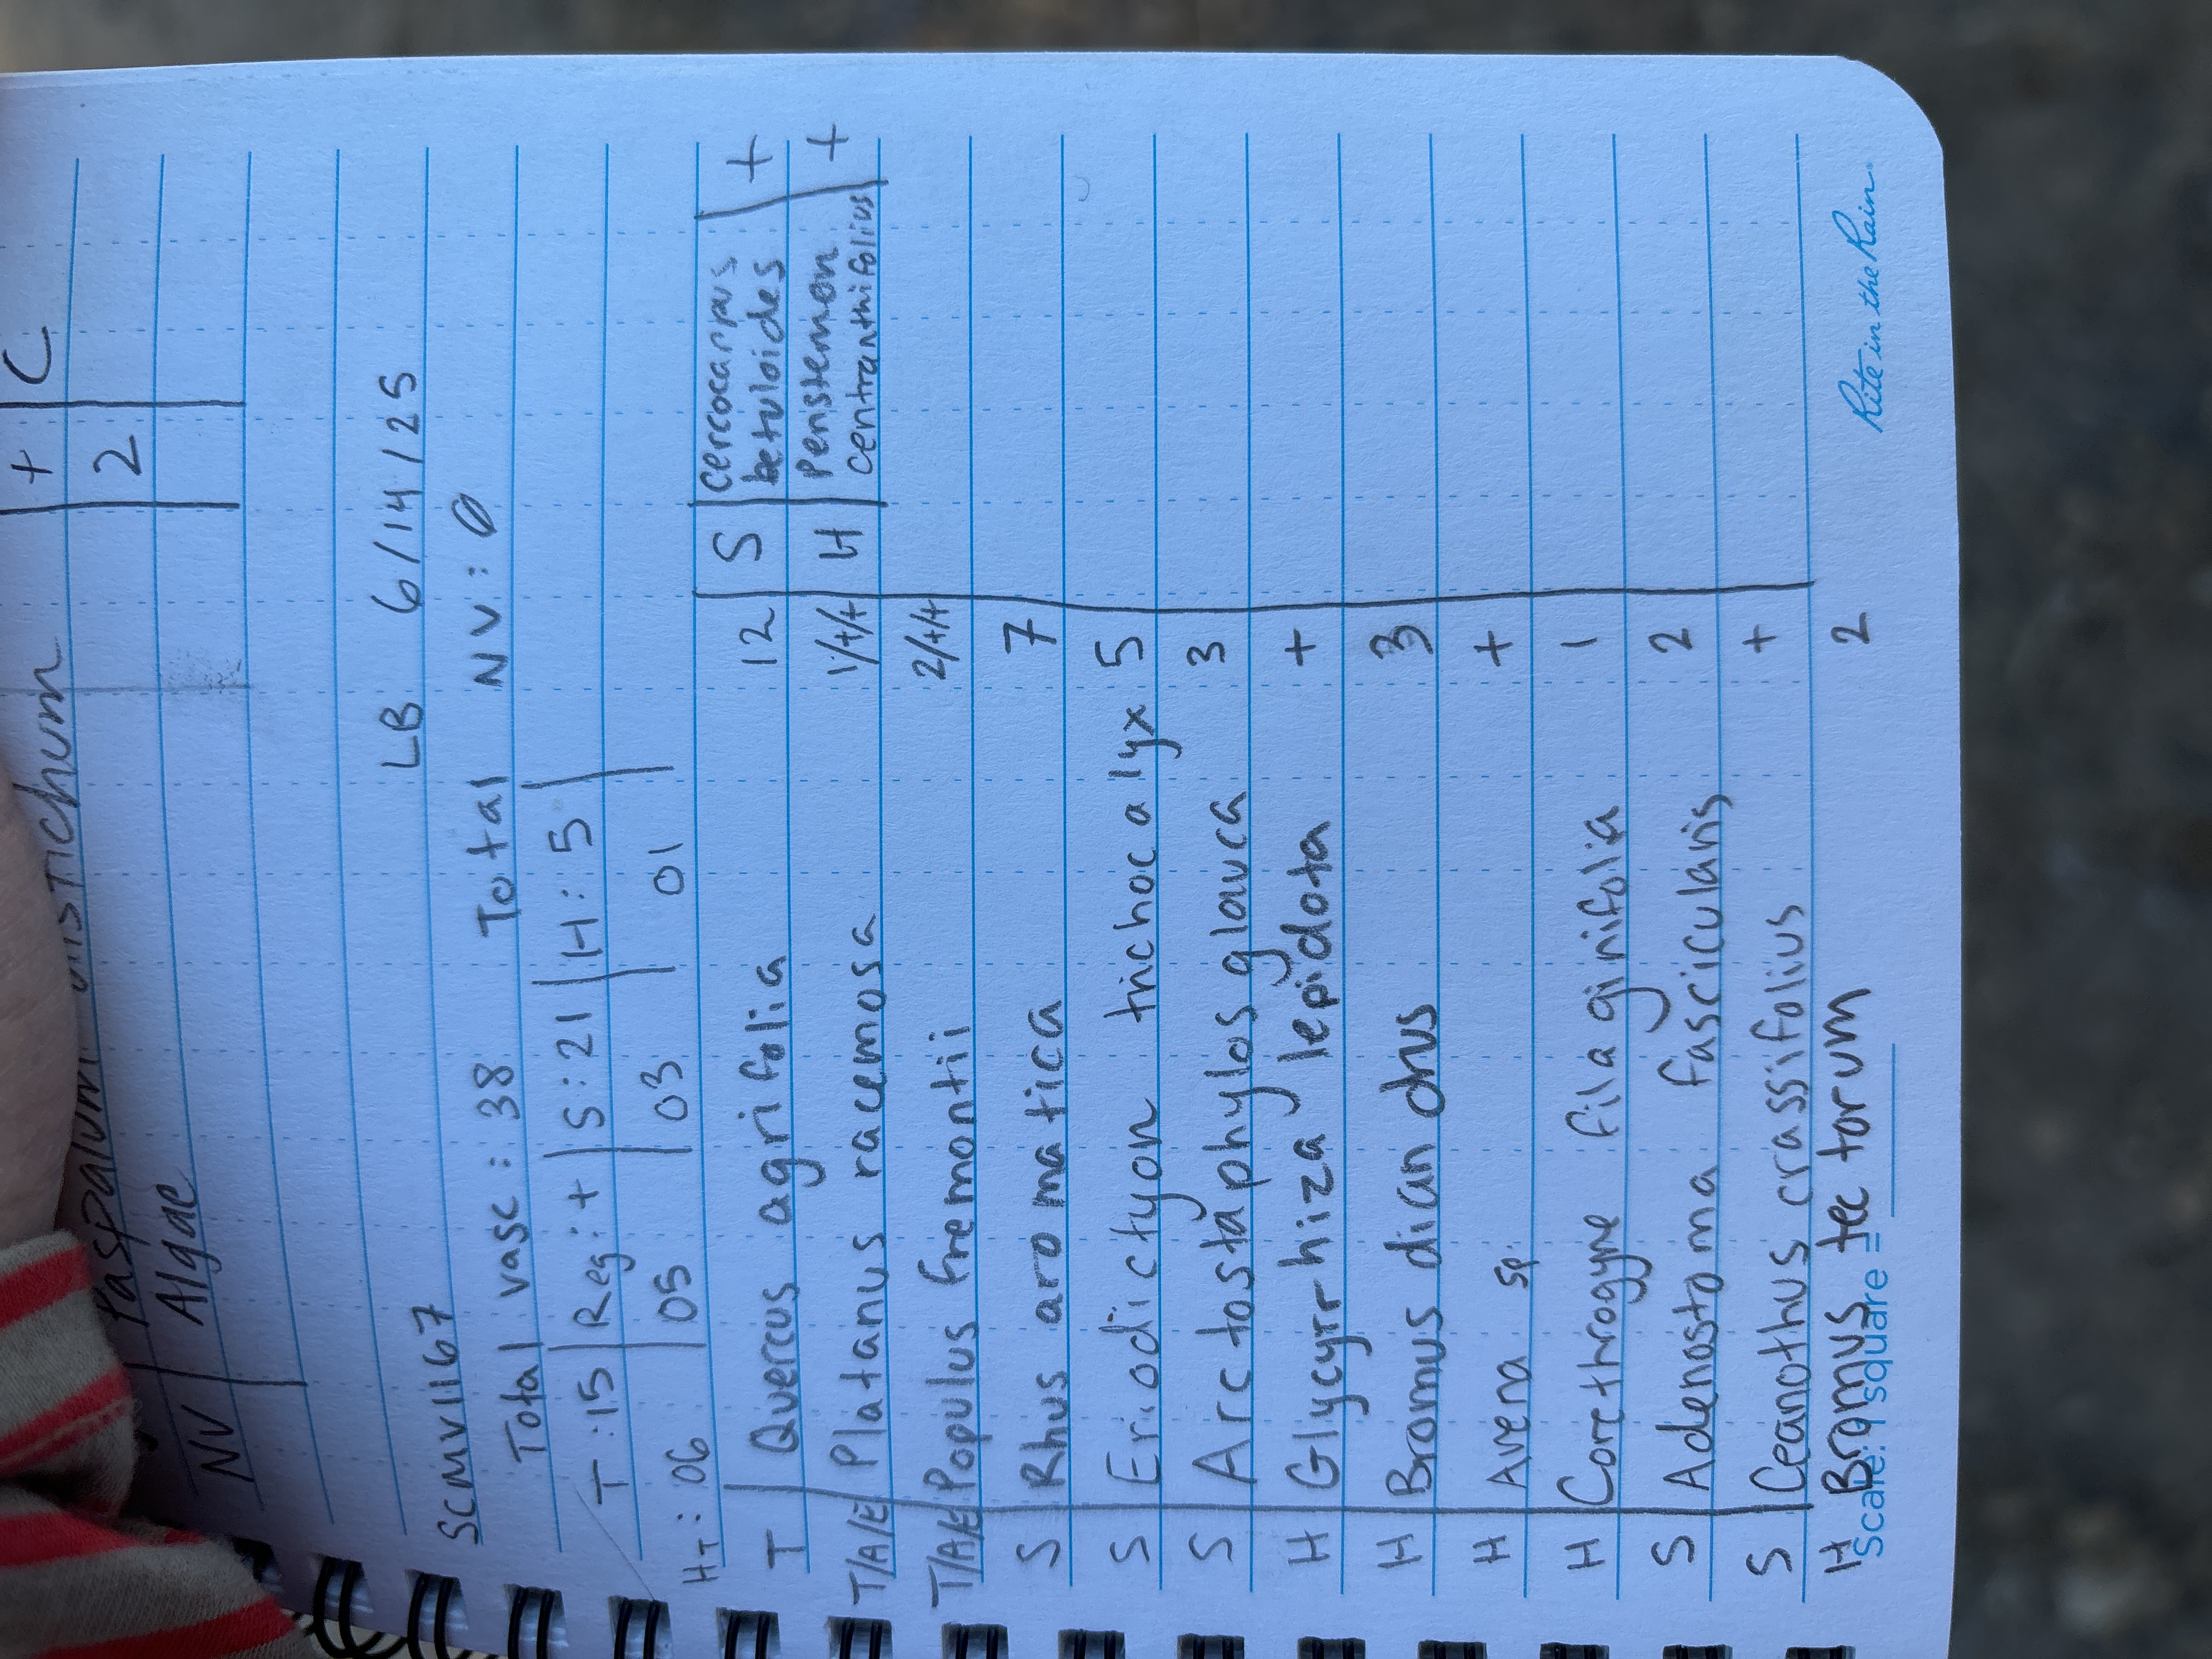 Paspalum distichum + C
NV Algae 2
SCMV1167 LB 6/14/25
Total vasc: 38 Total NV: 0
T:15 Reg:+ S:21 H:5
HT: 06 05 03 01
T Quercus agrifolia 12 S Cercocarpus betuloides +
T/A/E Platanus racemosa 1/+/+ H Penstemon centranthifolius +
T/A/E Populus fremontii 2/+/+
S Rhus aromatica 7
S Eriodictyon trichocalyx 5
S Arctostaphylos glauca 3
H Glycyrrhiza lepidota +
H Bromus diandrus 3
H Avena sp. +
H Corethrogyne filaginifolia 1
S Adenostoma fascicularis 2
S Ceanothus crassifolius +
H Bromus tectorum 2
Scale: 1 square = Rite in the Rain